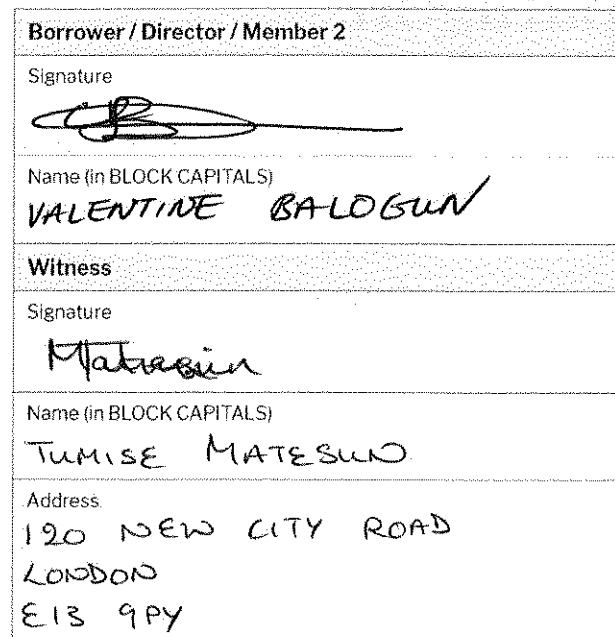 Borrower / Director / Member 2
Signature
Name (in BLOCK CAPITALS)
VALENTINE BALOGUN
Witness
Signature
Name (in BLOCK CAPITALS)
TUMISE MATESUN
Address
120 NEW CITY ROAD
LONDON
E13 9PY